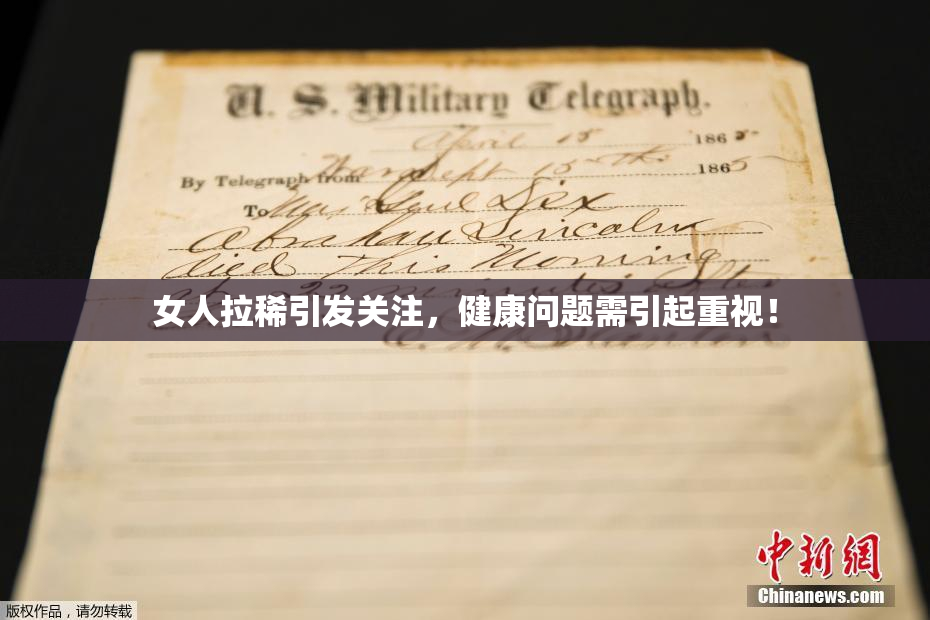 U. S. Military Telegraph.
April 15 1865
By Telegraph from War Dept 15th 1865
To Maj Genl Dix
Abraham Lincoln
died This Morning
at 22 minutes after
女人拉稀引发关注，健康问题需引起重视！
E. M. Stanton
中新網
Chinanews.com
版权作品，请勿转载